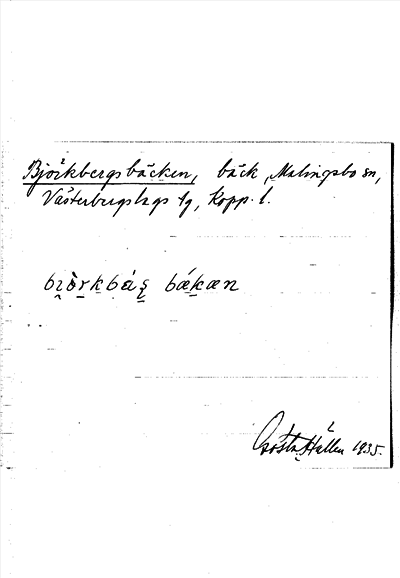 Björkbergsbäcken, bäck, Malingsbo sn,
Västerbergslags tg, Kopp. l.
bæ̀kæn
Gösta Hallen 1935.